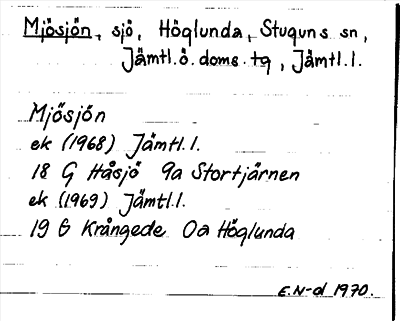 Mjösjön, sjö, Höglunda, Stuguns sn,
Jämtl.ö.doms.tg, Jämtl.l.
Mjösjön
ek (1968) Jämtl.l.
18 G Håsjö 9a Stortjärnen
ek (1969) Jämtl.l.
19 G Krångede 0a Höglunda
E.N-d 1970.